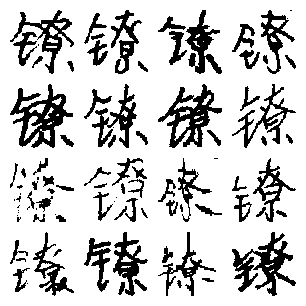 镣镣镣镣
镣镣镣镣
镣镣镣镣
镣镣镣镣